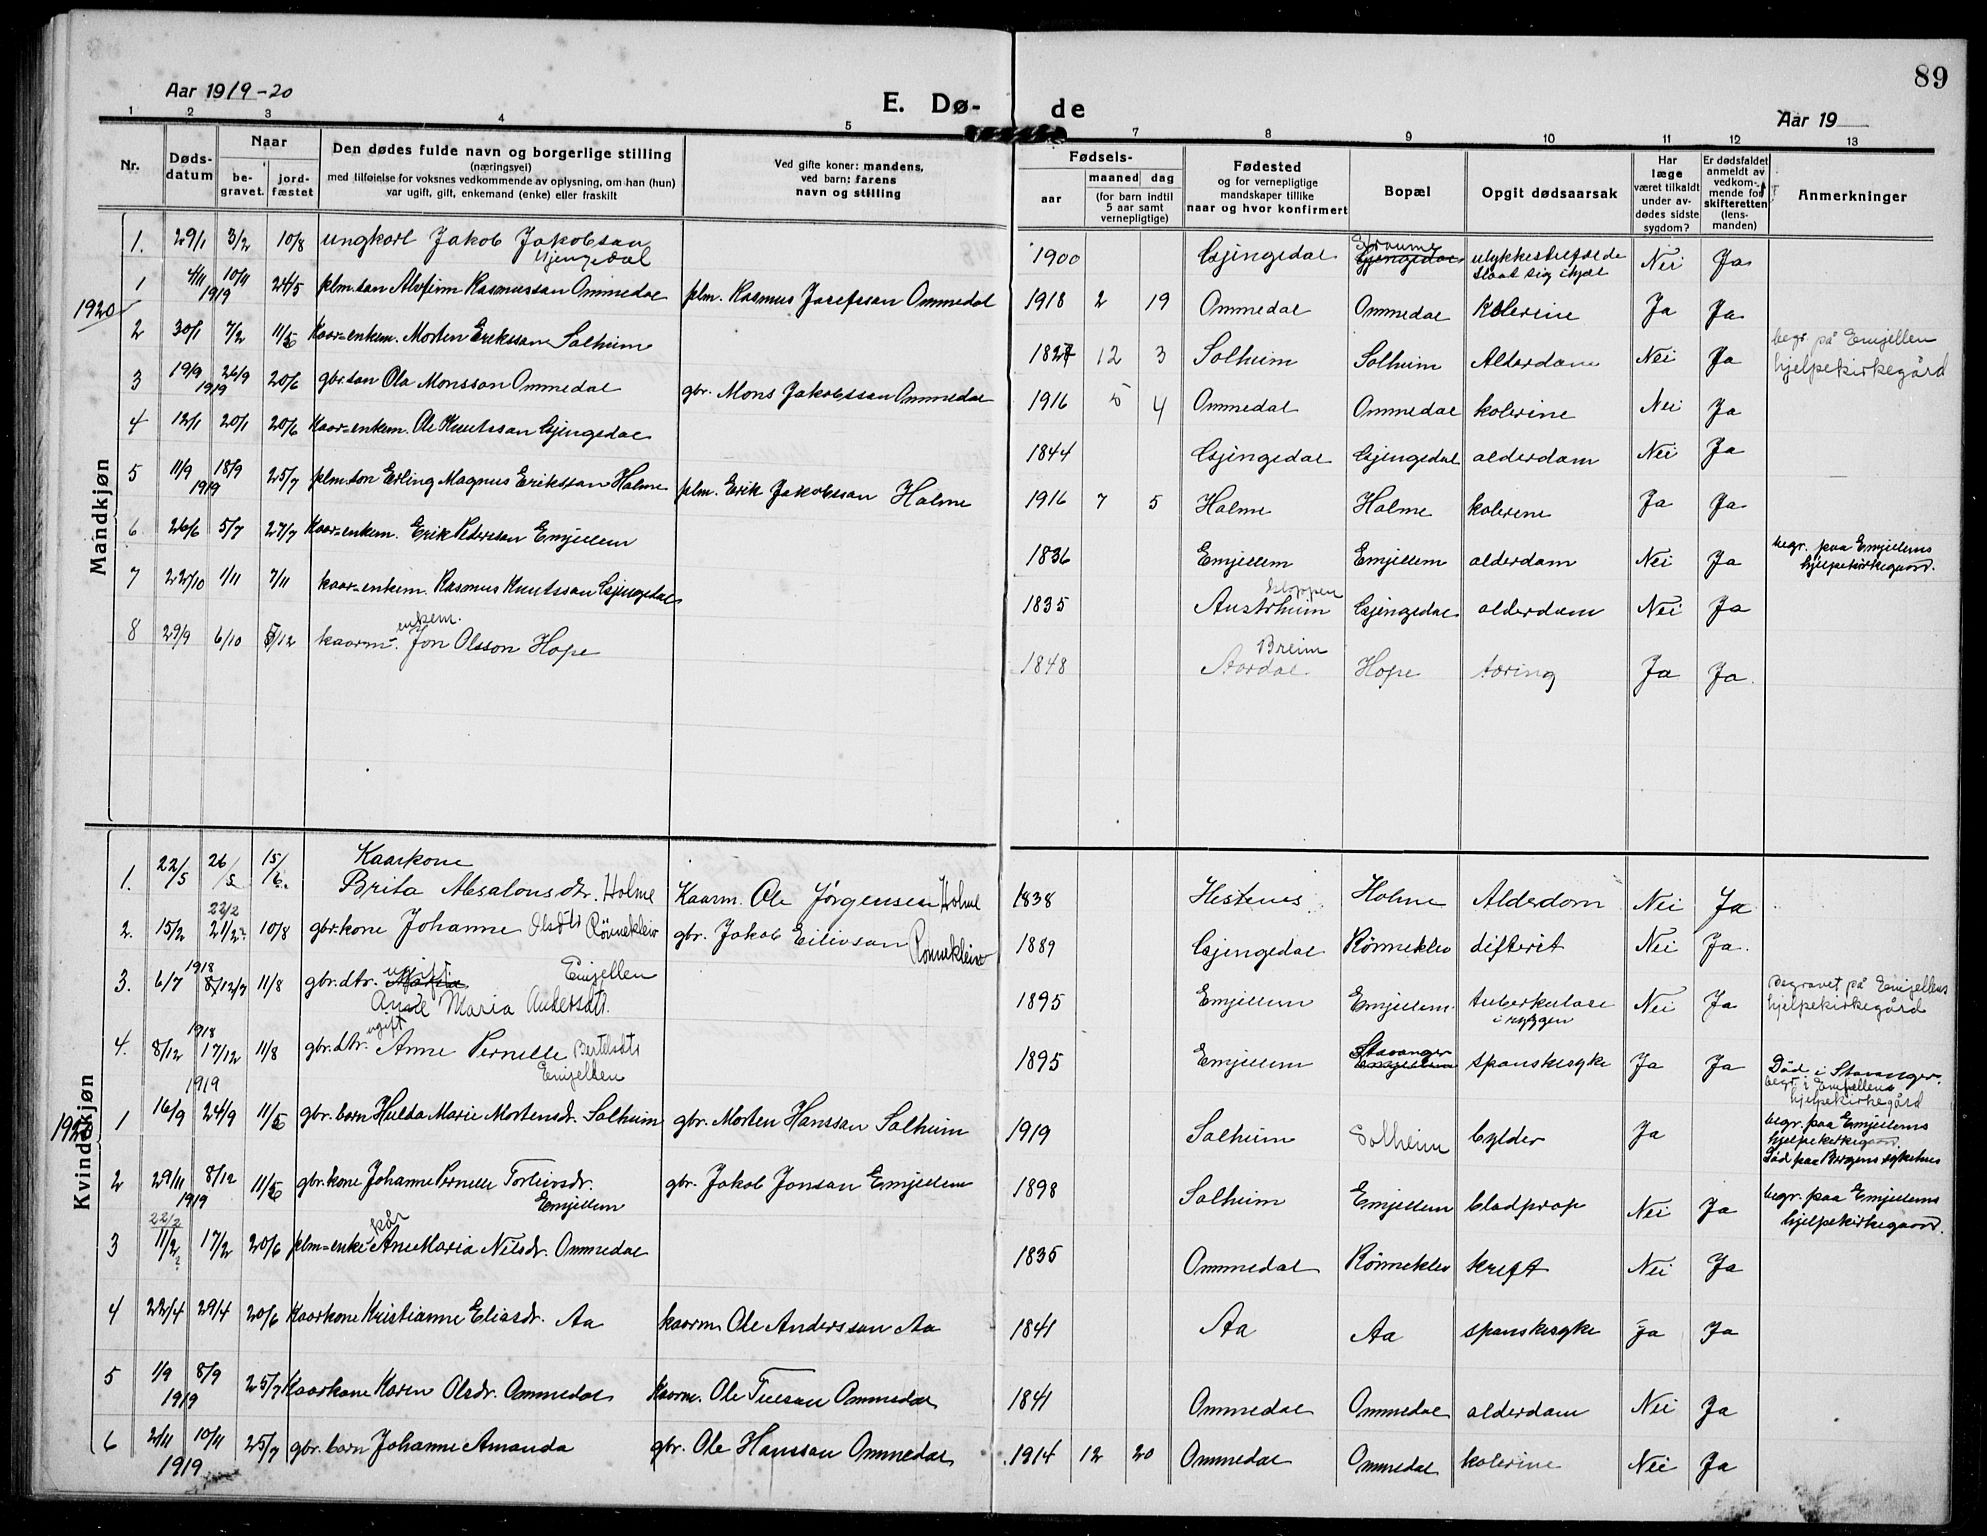 89
Aar 1919-20
E. Dø- de
Aar 19
1 2 3 4 5 7 8 9 10 11 12 13
Nr.
Døds-
datum
Naar
be-
gravet.
jord-
fæstet
Den dødes fulde navn og borgerlige stilling
(næringsvei)
med tilføielse for voksnes vedkommende av oplysning, om han (hun)
var ugift, gift, enkemand (enke) eller fraskilt
Ved gifte koner: mandens,
ved barn: farens
navn og stilling
Fødsels-
aar
maaned dag
(for barn indtil
5 aar samt
vernepligtige)
Fødested
og for vernepligtige
mandskaper tillike
naar og hvor konfirmert
Bopæl
Opgit dødsaarsak
Har
læge
været tilkaldt
under av-
dødes sidste
sygdom?
Er dødsfaldet
anmeldt av
vedkom-
mende for
skifteretten
(lens-
manden)
Anmerkninger
Mandkjøn
1. 29/1 3/2 10/8 ungkarl Jakob Jakobsson Gjengedal 1900 Gjengedal Straume Gjengedal ulykkestilfælde slaat sig ihjæl Nei Ja
1920
1 4/11 10/11 1919 24/5 plm.son Alvfinn Rasmusson Ommedal plm. Rasmus Josefsson Ommedal 1918 2 19 Ommedal Ommedal Kolerine Ja Ja
2 30/1 7/2 11/5 Kaar=enkem. Morten Eriksson Solheim 1827 12 3 Solheim Solheim Alderdom Nei Ja begr. på Emjellen hjelpekirkegård
3 19/9 26/9 1919 20/6 gbr.son Ola Monsson Ommedal gbr. Mons Jakobsson Ommedal 1916 5 4 Ommedal Ommedal kolerine Nei Ja
4 12/1 20/1 20/6 Kaar=enkem. Ole Knutsson Gjengedal 1844 Gjengedal Gjengedal alderdom Nei Ja
5 11/9 18/9 1919 25/7 plm.son Erling Magnus Eriksson Holme plm. Erik Jakobsson Holme 1916 7 5 Holme Holme kolerine Ja Ja
6 26/6 5/7 27/7 Kaar=enkem. Erik Pedersson Emjellem 1836 Emjellem Emjellem alderdom Nei Ja begr. paa Emjellems hjelpekirkegaard.
7 22/10 1/11 7/11 kaar=enkem. Rasmus Knutsson Gjengedal 1835 Austrheim Gloppen Gjengedal alderdom Nei Ja
8 29/9 6/10 5/12 kaarm. enkem. Jon Olsson Hope 1848 Aardal Breim Hope tæring Ja Ja.
Kvindekjøn
1. 22/5 26/5 15/6. Kaarkone Brita Absalonsdr. Holme Kaarm. Ole Jørgensen Holme 1838 Hestenes Holme Alderdom Nei Ja
2. 15/2 22/2 21/2? 10/8 gbr.kone Johanne Olsdtr Rönnekleiv gbr. Jakob Eilivson Rönnekleiv 1889 Gjengedal Rönneklev difterit Nei Ja.
3. 6/7 1918 12/7 11/8 gbr.dtr. ugift Maria Emjellen Anne Maria Andersdtr. 1895 Emjellem Emjellem. tuberkulose i ryggen Nei Ja Begravet på Emjellens hjelpekirkegård
4. 8/12 1918 17/12 11/8 gbr.dtr. ugift Anne Pernelle Bertelsdtr Emjellen 1895 Emjellem Stavanger Emjellem spanskesyke Ja Ja Död i Stavanger. begr. i Emjellens hjelpekirkegård
1 16/9 1919 24/9 11/5 gbr.barn Hulda Marie Mortensdr. Solheim gbr. Morten Hansson Solheim 1919 Solheim Solheim bylder Ja begr. paa Emjellems hjelpekirkegaard. Död paa Bergens sykehus
2 29/11 8/12 1919 11/5 gbr.kone Johanne Pernelle Torleivsdr. Emjellem gbr. Jakob Jonsson Emjellem 1898 Solheim Emjellem blodprop Nei Ja begr. paa Emjellems hjelpekirkegaard.
3 22/2 11/2? 17/2 20/6 plm=enke kår Ane Maria Nilsdr. Ommedal 1835 Ommedal Rönneklev kreft Nei Ja
4 22/4 29/4 20/6 Kaarkone Kristianne Eliasdr. Aa kaarm. Ole Andersson Aa 1841 Aa Aa spanskesyke Ja Ja
5 1/9 8/9 1919 25/7 Kaarkone Karen Olsdr. Ommedal Kaarm. Ole Ommedal 1841 Ommedal Ommedal alderdom Nei Ja
6 2/11 10/11 1919 25/7 gbr.barn Johanne Amanda gbr. Ole Hansson Ommedal 1914 12 20 Ommedal Ommedal kolerine Nei Ja